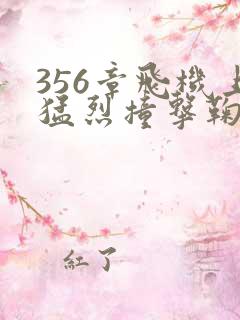 356章飛機上
猛烈撞擊鞠
紅了